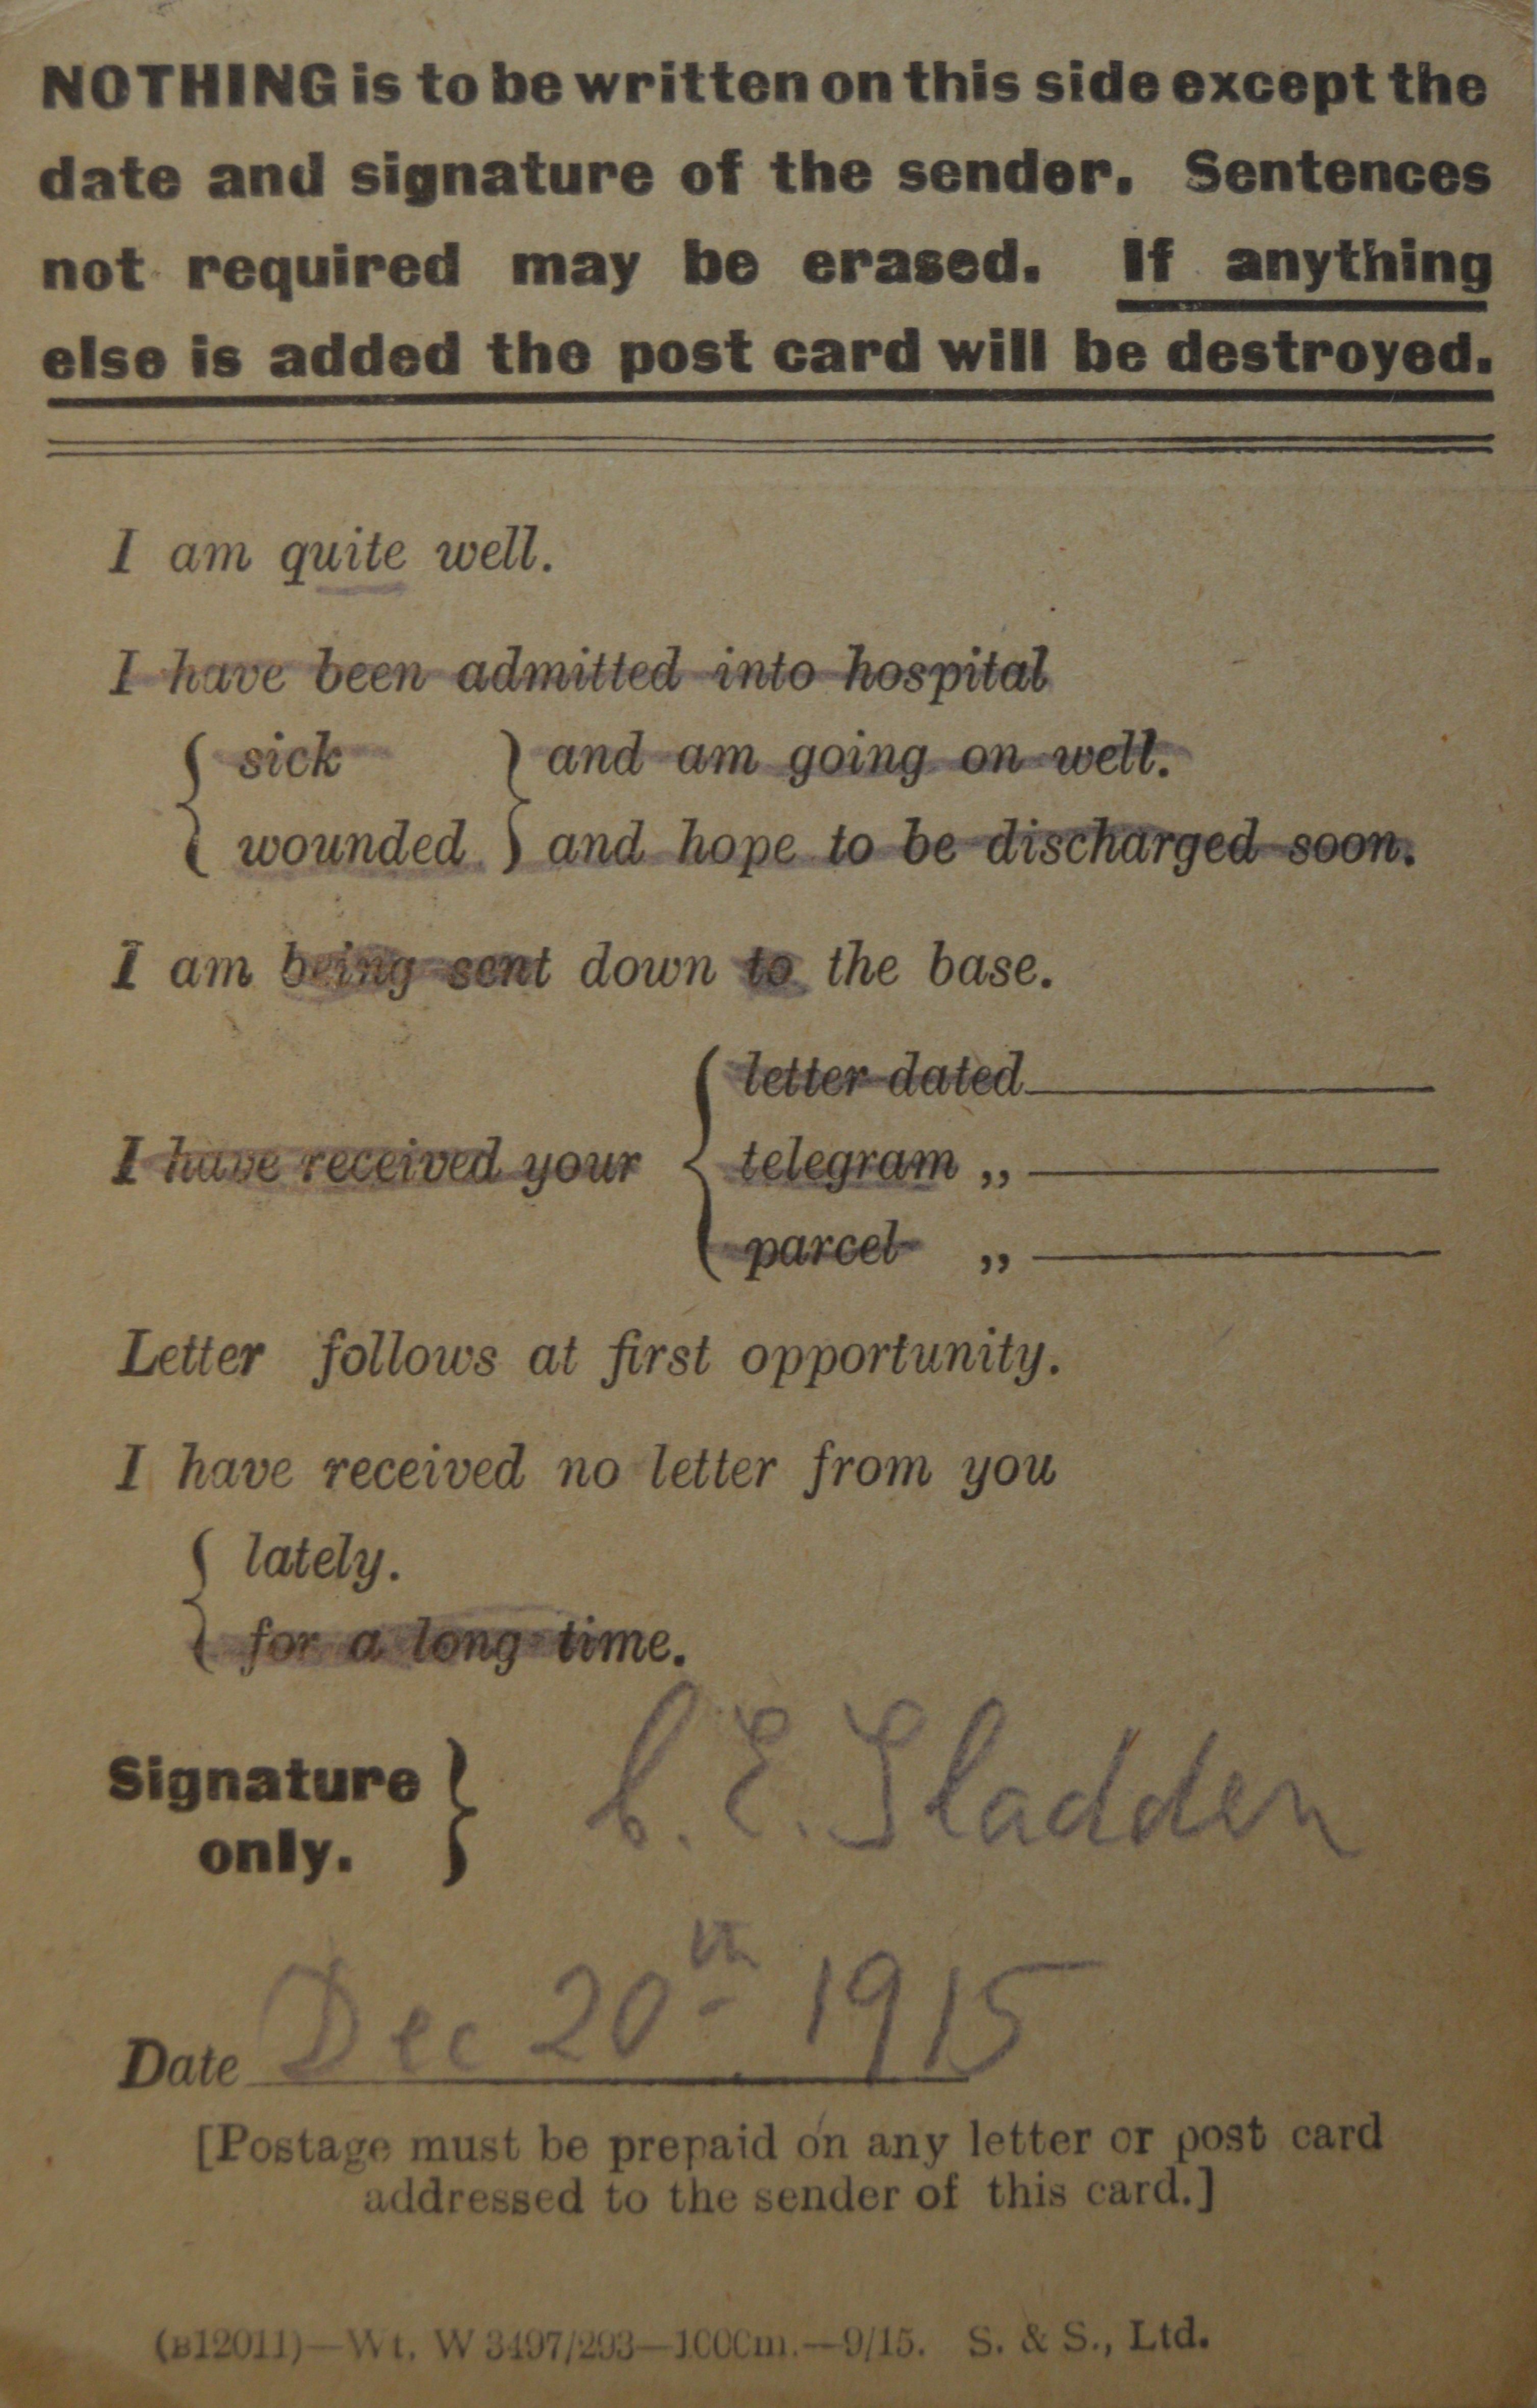 NOTHING is to be written on this side except the
date and signature of the sender. Sentences
not required may be erased. If anything
else is added the post card will be destroyed.
I am quite well.
I have been admitted into hospital
{ sick } and am going on well.
{ wounded } and hope to be discharged soon.
I am being sent down to the base.
{ letter dated
I have received your { telegram „
{ parcel „
Letter follows at first opportunity.
I have received no letter from you
{ lately.
{ for a long time.
Signature
only. } C. E. Sladden
Date Dec 20th 1915
[Postage must be prepaid on any letter or post card
addressed to the sender of this card.]
(B12011)—Wt. W 3497/293—1000m.—9/15. S. & S., Ltd.